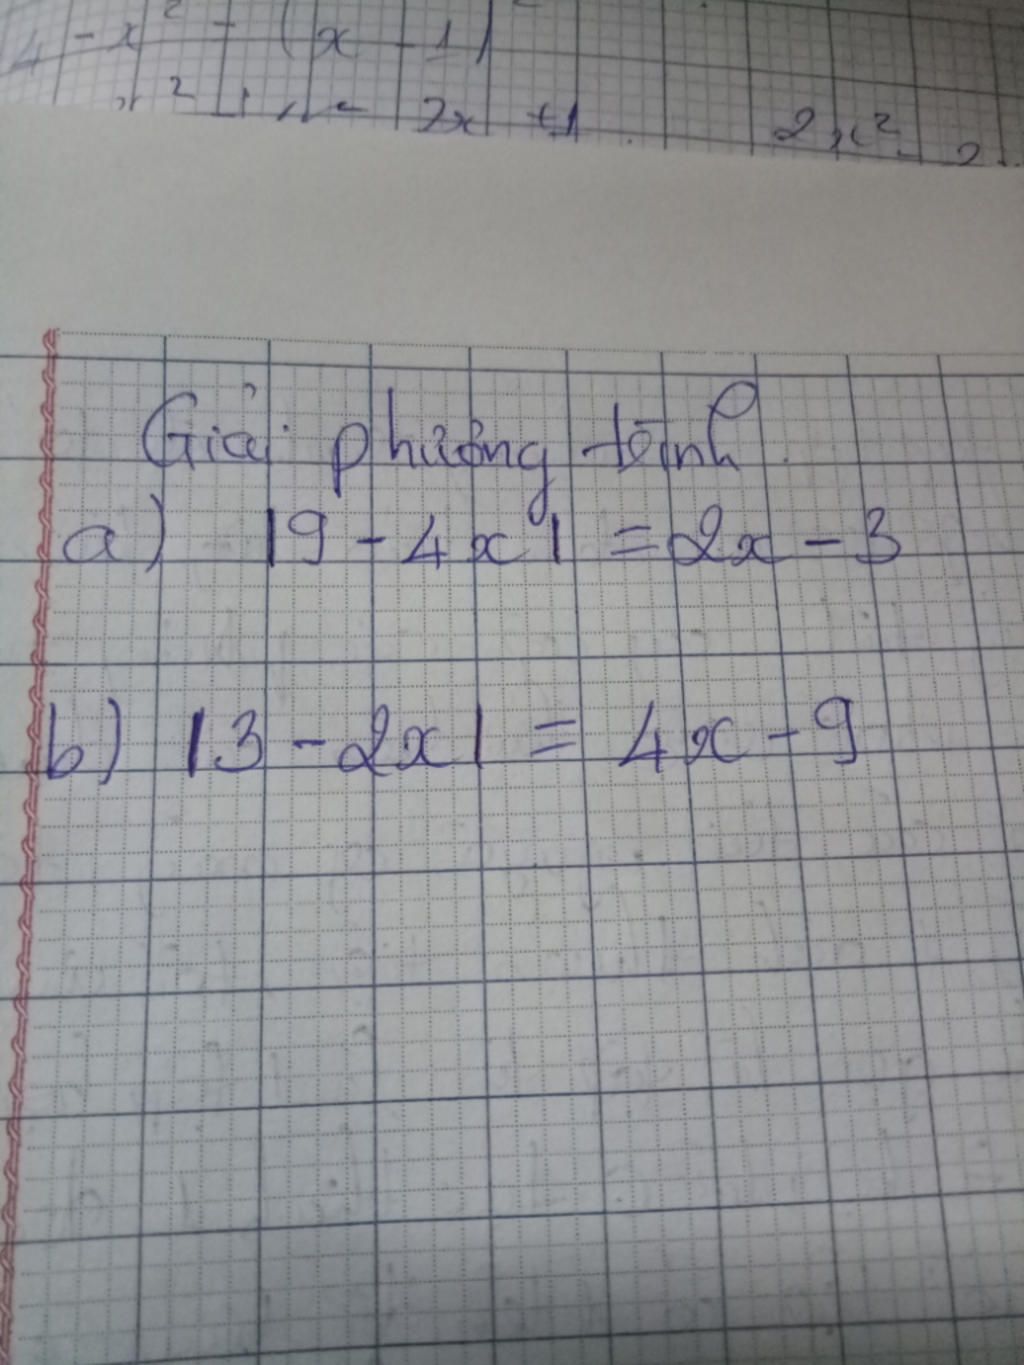 4 - x² - (x - 1)²
2x + 1 2x² 2
Giải phương trình.
a) |9 - 4x| = 2x - 3
b) |3 - 2x| = 4x - 9